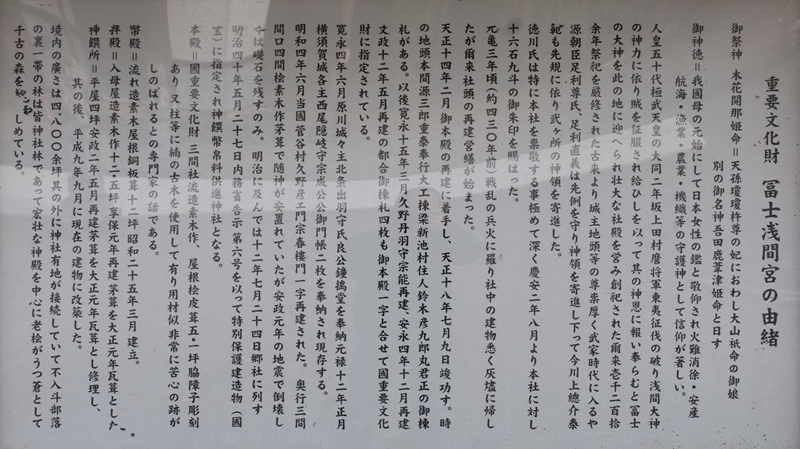 重要文化財　冨士浅間宮の由緒
御祭神　木花開那姫命＝天孫瓊瓊杵尊の妃におわし大山祇命の御娘
別の御名神吾田鹿葦津姫命と日す
御神徳＝我國母の元始にして日本女性の鑑と敬仰され火難消徐・安産
航海・漁業・農業・機織等の守護神として信仰が著しい。
人皇五十代桓武天皇の大同二年坂上田村麿将軍東夷征伐の破り浅間大神
の神力に依り賊を征服され給ひしを以って其の神恩に報い奉らむと冨士
の大神を此の地に迎へられ壮大な社殿を営み創祀された爾来壱千二百拾
余年祭祀を厳修された古来より城主地頭等の尊崇厚く武家時代に入るや
源朝臣足利尊氏、足利直義は先例を守り神領を寄進し下って今川上總介泰
範も先規に依り弐ヶ所の神領を寄進した。
徳川氏は特に本社を崇敬する事極めて深く慶安二年八月より本社に対し
十六石九斗の御朱印を賜はった。
元亀三年頃（約四三〇年前）戦乱の兵火に罹り社中の建物悉く灰燼に帰し
たが爾来社頭の再建営繕が始まった。
天正十四年二月御本殿の再建に着手し、天正十八年七月九日竣功す。時
の地頭本間源三郎重泰奉行大工棟梁新池村住人鈴木彦九郎丸君正の御棟
札がある。以後寛永十五年三月久野丹羽守宗能再建、安永四年十二月再建
文政十二年五月再建の都合御棟札四枚も御本殿一字と合せて國重要文化
財に指定されている。
寛永四年六月原川城々主北条出羽守氏良公鐘搗堂を奉納元禄十二年正月
横須賀城各主西尾隠岐守宗成公公御門帳二枚を奉納され現存する。
明和四年六月当國菅谷村久野彦エ門宗春樓門一字再建された。奥行三間
間口四間桧素木作茅葺で随神が安置れていたが安政元年の地震で倒壊し
今は礎石を残すのみ。明治に及んでは十二年七月二十四日郷社に列す
明治四十年五月二十七日内務省告示第六号を以って特別保護建造物（國
宝）に指定され神饌幣帛料供進神社となる。
本殿＝國重要文化財 三間社流造素木作、屋根桧皮葺五・一坪脇障子彫刻
あり 又柱等に楠の古木を使用して有り用材似非常に苦心の跡が
しのばれるとの専門家の話である。
幣殿＝流れ造素木屋根銅板葺十二坪 昭和二十五年三月 建立。
拝殿＝入母屋造素木作十二・五坪享保元年再建茅葺を大正元年瓦葺とした。
神饌所＝平屋四坪安政二年五月再建茅葺を大正元年瓦葺とし修理し、
其の後、平成九年九月に現在の建物に改築した。
境内の廣さは四八〇〇余坪其の外に神社有地が接続していて不入斗部落
の裏一帯の林は皆神社林であって宏壮な神殿を中心に老桧がうつ蒼として
千古の森をしめている。